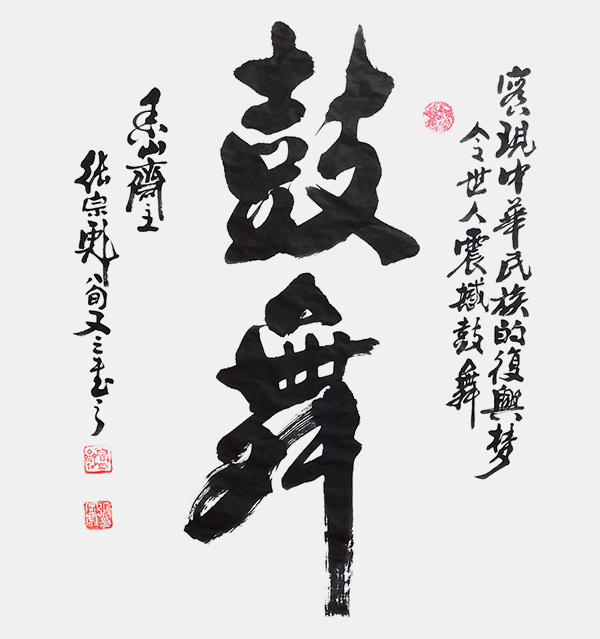 實現中華民族的復興梦
令世人震撼鼓舞
鼓舞
山齋主
張宗彪旬又三書